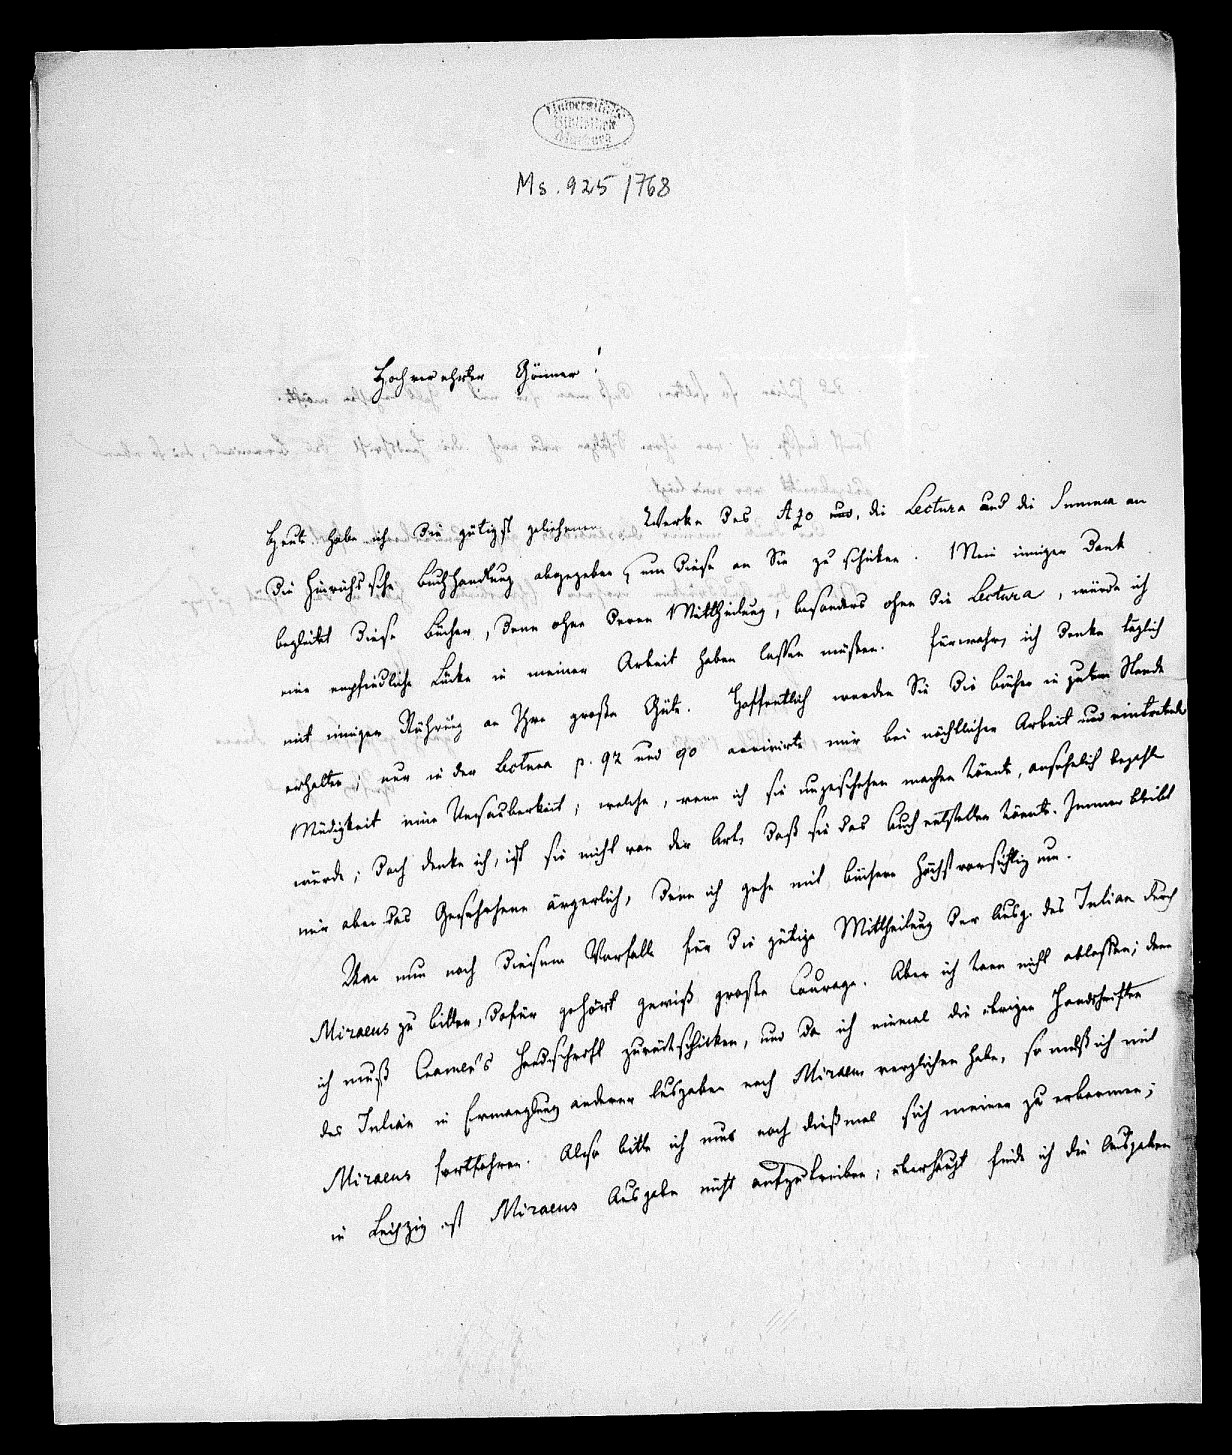 Universitäts
Bibliothek
Marburg
Ms. 925/768
Hochverehrter Gönner!
Heute habe ich die gütigst geliehenen Werke des Azo und, die Lectura und die Summa an
die Hinrichs'sche Buchhandlung abgegeben, um diese an Sie zu schicken. Mein inniger Dank
begleitet diese Bücher, denn ohne deren Mittheilung, besonders ohne die Lectura, würde ich
eine empfindliche Lücke in meiner Arbeit haben lassen müssen. Fürwahr, ich denke täglich
mit inniger Rührung an Ihre große Güte. Hoffentlich werden Sie die Bücher in gutem Stande
erhalten; nur in der Lectura p. 92 und 90 arrivirte mir bei nächtlicher Arbeit und eintretender
Müdigkeit eine Unsauberkeit, welche, wenn ich sie ungeschehen machen könnte, ansehnlich bezahlen
würde; doch denke ich, ist sie nicht von der Art, daß sie das Buch entstellen könnte. Immer bleibt
mir aber das Geschehene ärgerlich, denn ich gehe mit Büchern höchst vorsichtig um.
Um nun nach diesem Vorfalle für die gütige Mittheilung der Ausg. des Julian durch
Miraeus zu bitten, dafür gehört gewiß große Courage. Aber ich kann nicht ablassen; denn
ich muß Cramer's Handschrift zurückschicken, und da ich einmal die übrigen Handschriften
des Julian in Ermanglung anderer Ausgaben nach Miraeus verglichen habe, so muß ich mit
Miraeus fortfahren. Also bitte ich nur noch dießmal sich meiner zu erbarmen;
in Leipzig ist Miraeus Ausgabe nicht aufzutreiben; überhaupt finde ich die Ausgaben